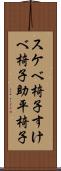 スケベ椅子すけ
べ椅子助平椅子